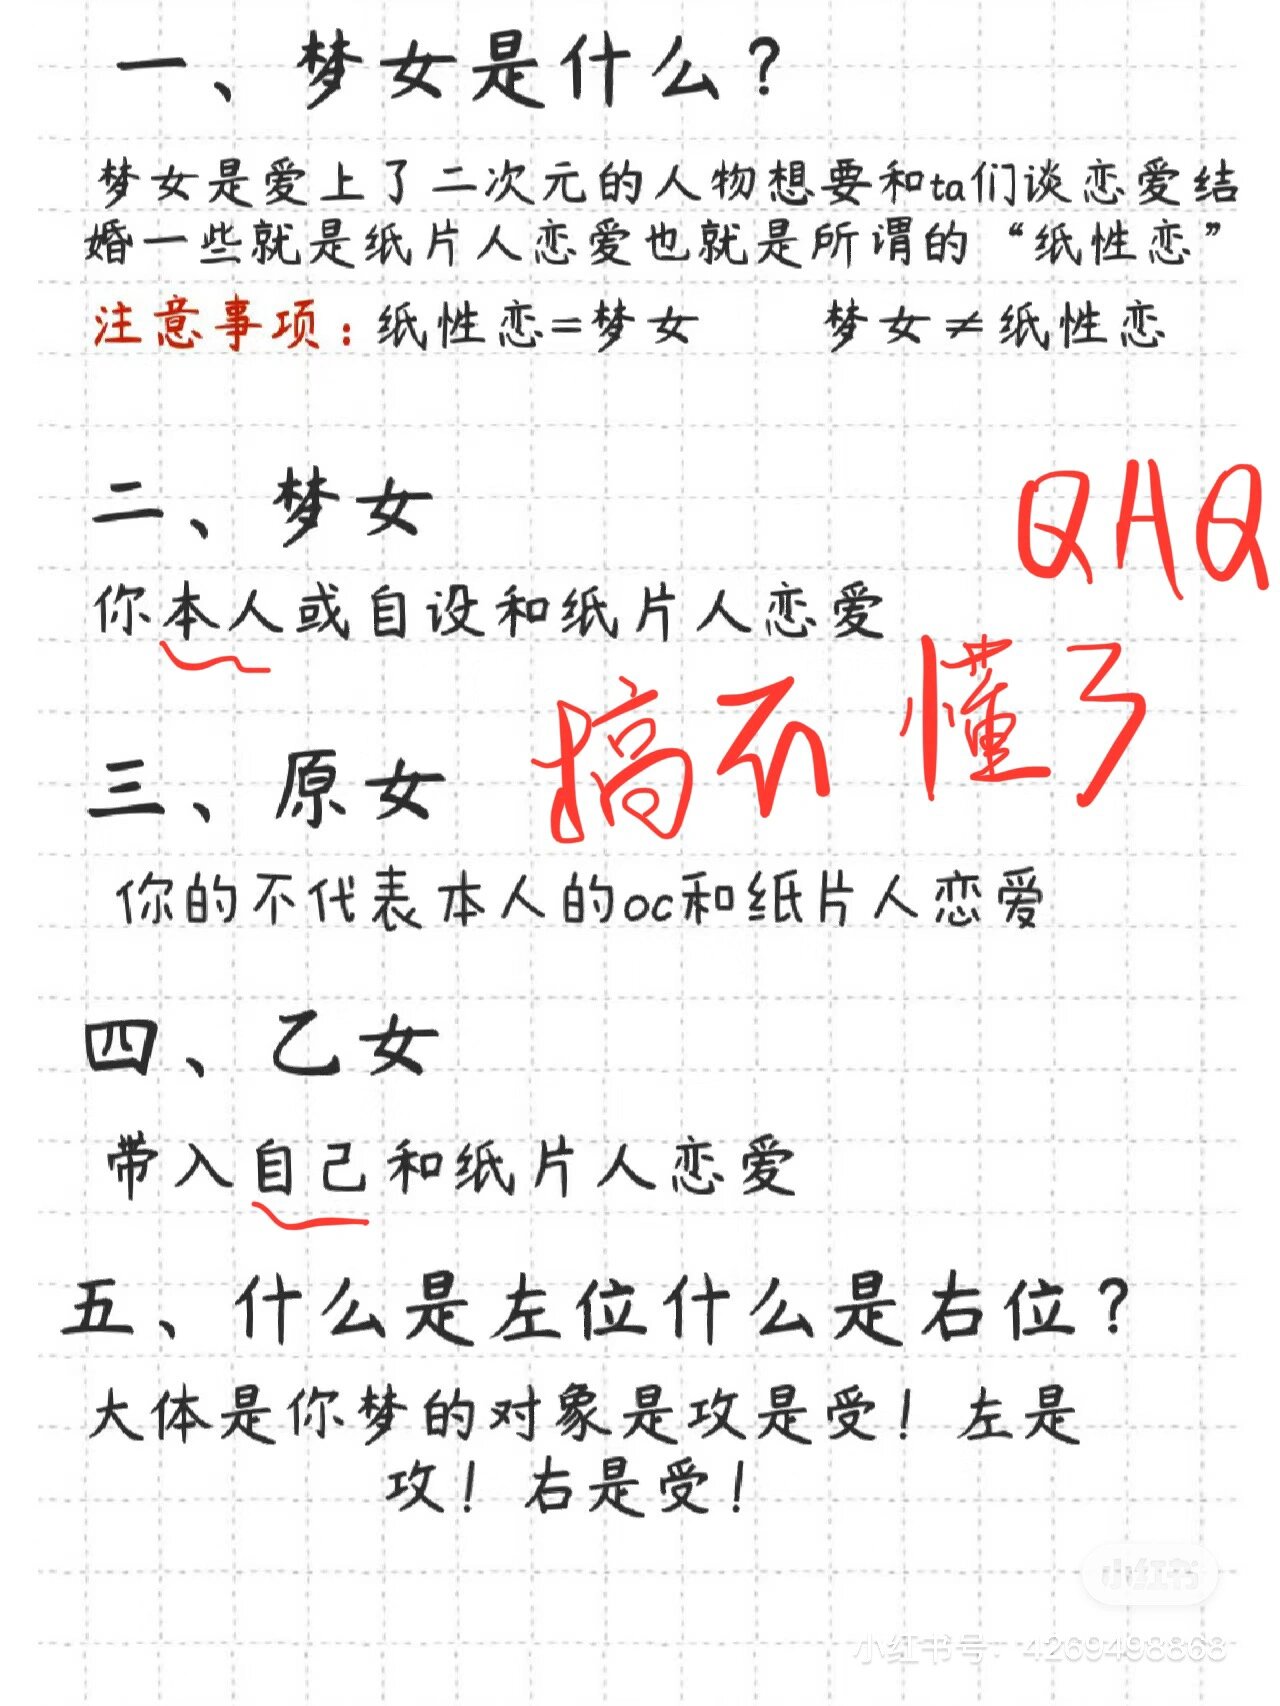 一、梦女是什么？
梦女是爱上了二次元的人物想要和ta们谈恋爱结
婚一些就是纸片人恋爱也就是所谓的“纸性恋”
注意事项：纸性恋=梦女 梦女≠纸性恋
二、梦女
QAQ
你本人或自设和纸片人恋爱
搞不懂了
三、原女
你的不代表本人的oc和纸片人恋爱
四、乙女
带入自己和纸片人恋爱
五、什么是左位什么是右位？
大体是你梦的对象是攻是受！左是
攻！右是受！
小红书
小红书号：4269498868